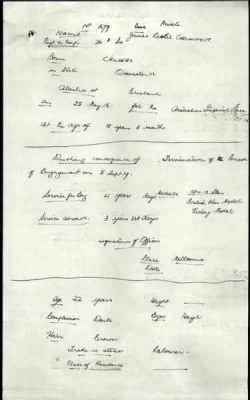 No 1679 Private
Name James Leslie
Regt or Corps 26th Bn
Born CHILDERS
in State Queensland
Attested at Brisbane
on 25 May 15 for the Australian Imperial Force
at the age of 18 years 6 months
Discharge consequence of Termination of the Period
of Engagement on 5 Sept 19.
Service for 4 years days Medals 1914-15 Star
British War Medal
Victory Medal
Service abroad 3 years days
signature of Officer
Place Melbourne
Date
Age 22 years Height —
Complexion Dark Eyes Hazel
Hair Brown
Trade as stated Labourer
Place of Residence